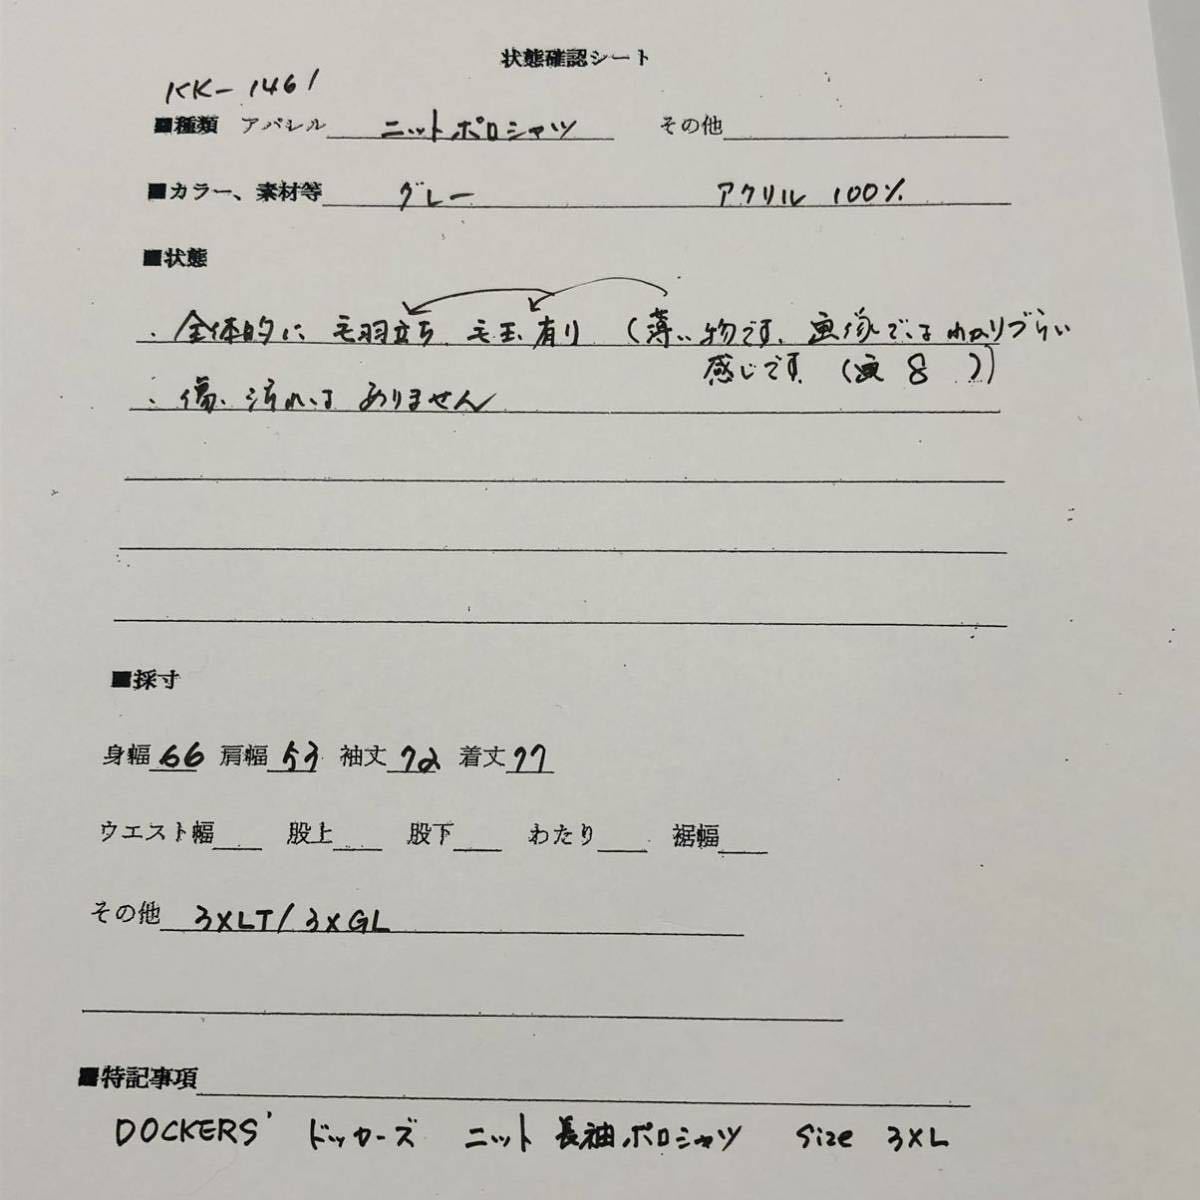 状態確認シート
KK-1461
■種類 アパレル ニットポロシャツ その他
■カラー、素材等 グレー アクリル 100%
■状態
・全体的に 毛羽立ち 毛玉 有り (薄い物です、画像ではわかりづらい
感じです (画 8 ))
・傷、汚れは ありません
■採寸
身幅 66 肩幅 53 袖丈 72 着丈 77
ウエスト幅 股上 股下 わたり 裾幅
その他 3XLT/3XGL
■特記事項
DOCKERS' ドッカーズ ニット 長袖ポロシャツ size 3XL